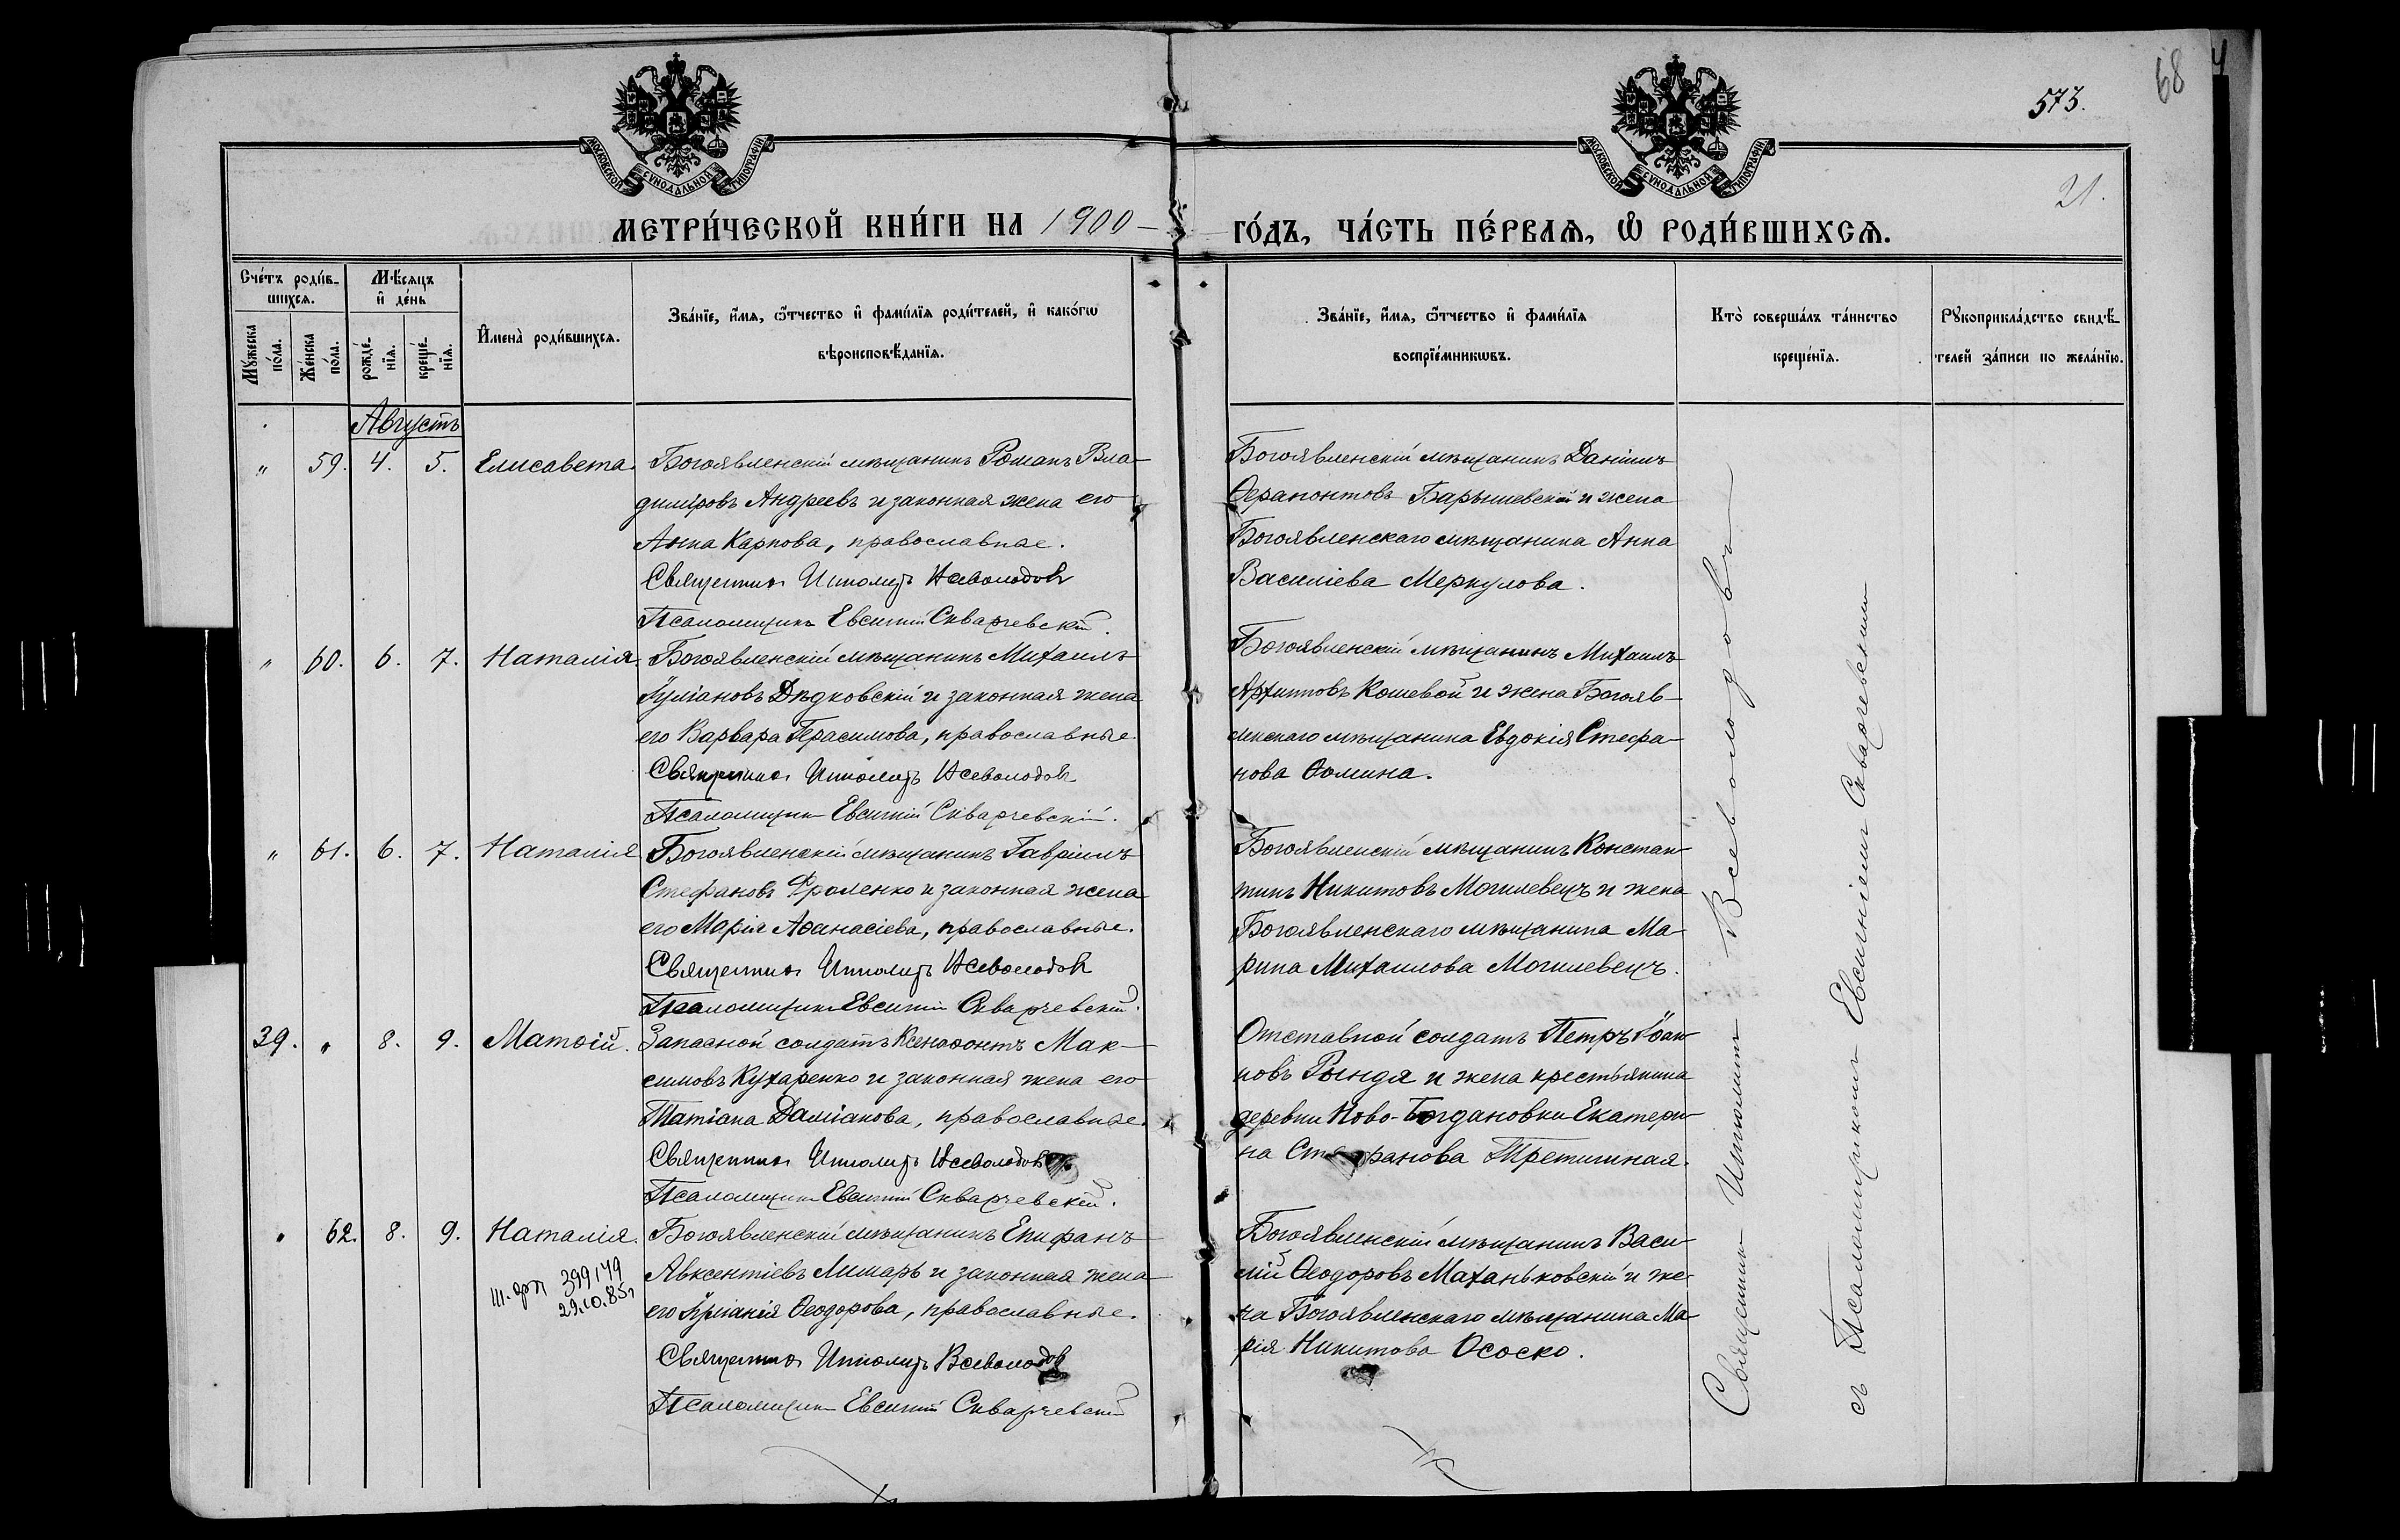 573.
68
21.
МОСКОВСКОЙ СѴНОДАЛЬНОЙ ТИПОГРАФІИ
МОСКОВСКОЙ СѴНОДАЛЬНОЙ ТИПОГРАФІИ
МЕТРИ́ЧЕСКОЙ КНИ́ГИ НА 1900 ГО́ДЪ, ЧА́СТЬ ПЕ́РВАѦ, Ѡ҆ РОДИ́ВШИХСѦ.
Сче́тъ роди́в-
шихсѧ.
Мѣ́сѧцъ
и҆ де́нь
Мꙋ́жеска
по́ла.
Же́нска
по́ла.
рожде́-
нїѧ.
креще́-
нїѧ.
И҆мена̀ роди́вшихсѧ.
Зва́нїе, и҆́мѧ, ѻ҆́тчество и҆ фами́лїѧ роди́телей, и҆ како́гѡ
вѣроисповѣ́данїѧ.
Зва́нїе, и҆́мѧ, ѻ҆́тчество и҆ фами́лїѧ
воспрїе́мникѡвъ.
Кто̀ соверша́лъ та́инство
креще́нїѧ.
Рꙋкоприкла́дство свидѣ́-
телей за́писи по жела́нїю.
Августъ
" 59. 4. 5. Елисавета. Богоявленскій мѣщанинъ Романъ Вла-
диміровъ Андреевъ и законная жена его
Анна Карпова, православные.
Священникъ Ипполитъ Всеволодовъ
Псаломщикъ Евсигній Скварчевскій.
Богоявленскій мѣщанинъ Даніилъ
Ѳерапонтовъ Барышевскій и жена
Богоявленскаго мѣщанина Анна
Василіева Меркулова.
" 60. 6. 7. Наталія. Богоявленскій мѣщанинъ Михаилъ
Іуліановъ Дѣдковскій и законная жена
его Варвара Герасимова, православные.
Священникъ Ипполитъ Всеволодовъ
Псаломщикъ Евсигній Скварчевскій.
Богоявленскій мѣщанинъ Михаилъ
Архиповъ Кошевой и жена Богояв-
ленскаго мѣщанина Евдокія Стефа-
нова Ѳомина.
" 61. 6. 7. Наталія Богоявленскій мѣщанинъ Гавріилъ
Стефановъ Фроленко и законная жена
его Марія Аѳанасіева, православные.
Священникъ Ипполитъ Всеволодовъ
Псаломщикъ Евсигній Скварчевскій.
Богоявленскій мѣщанинъ Констан-
тинъ Никитовъ Могилевецъ и жена
Богоявленскаго мѣщанина Ма-
рина Михаилова Могилевецъ.
39. " 8. 9. Матѳій. Запасной солдатъ Ксенофонтъ Мак-
симовъ Кухаренко и законная жена его
Татіана Даміанова, православные.
Священникъ Ипполитъ Всеволодовъ
Псаломщикъ Евсигній Скварчевскій.
Отставной солдатъ Петръ Іоан-
новъ Рындя и жена крестьянина
деревни Ново-Богдановки Екатери-
на Стефанова
" 62. 8. 9. Наталія. Богоявленскій мѣщанинъ Епифанъ
Авксентіевъ Лимарь и законная жена
его Іуліанія Ѳеодорова, православные.
Священникъ Ипполитъ Всеволодов
Псаломщикъ Евсигній Скварчевскій
399179
29.10.85г
Богоявленскій мѣщанинъ Васи-
лій Ѳеодоровъ Маханьковскій и же-
на Богоявленскаго мѣщанина Ма-
рія Никитова Ососко.
Священникъ Ипполитъ Всеволодовъ
съ Псаломщикомъ Евсигніемъ Скварчевскимъ